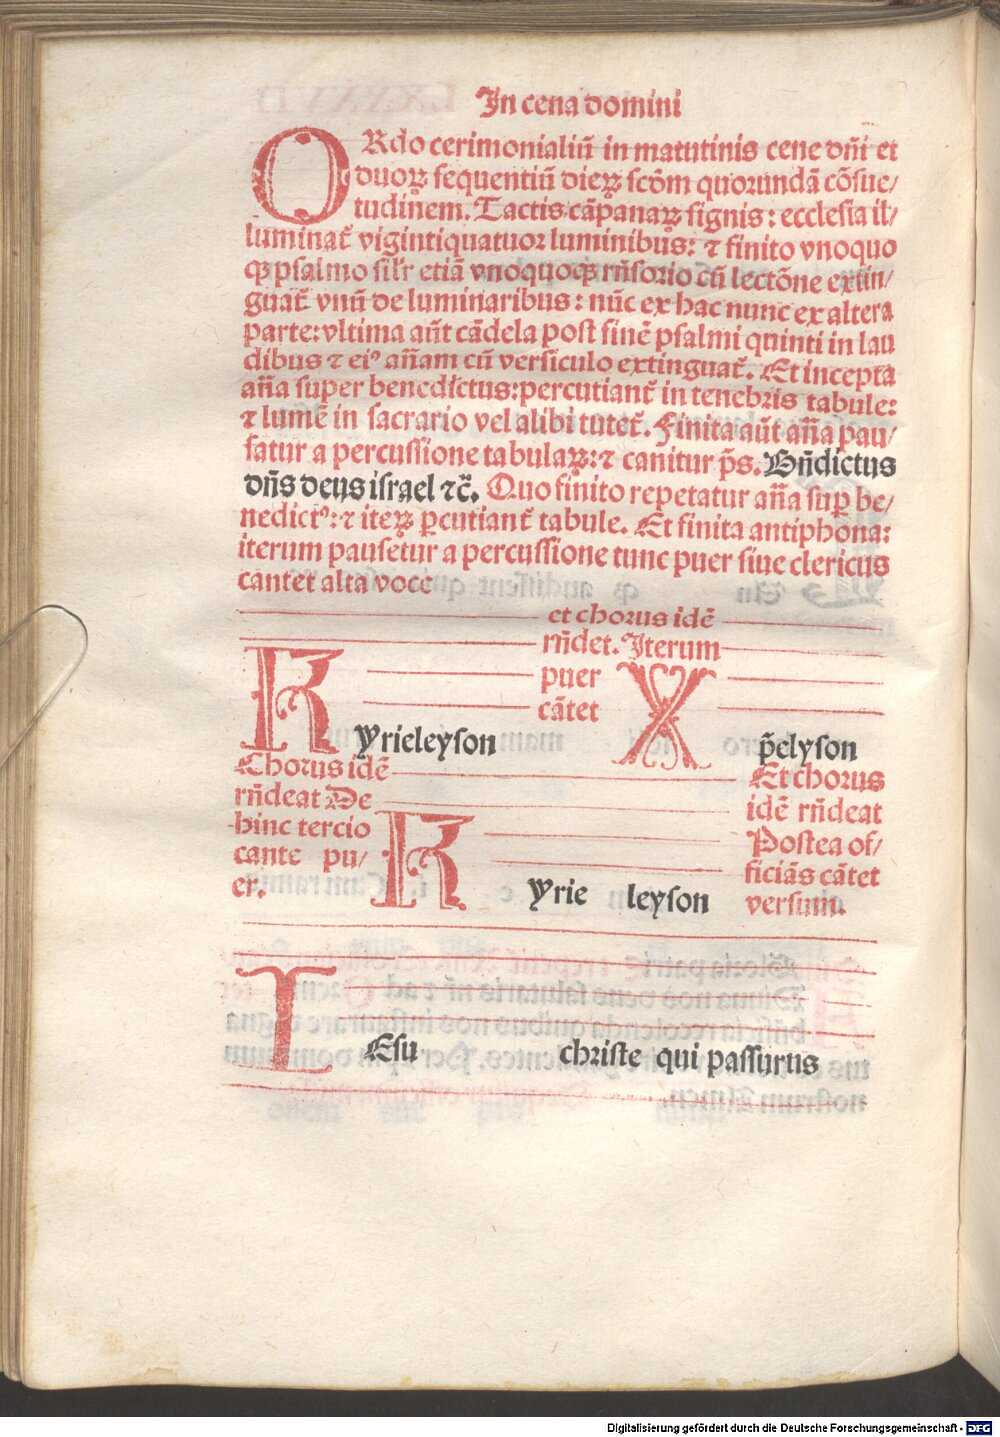 In cena domini
ORdo cerimonialiū in matutinis cene dn̄i et
duoꝝ sequentiū dieꝝ scd̄m quorundā cōsue/
tudinem. Tactis cāpanaꝝ signis: ecclesia il/
luminat̄ vigintiquatuor luminibus: ⁊ finito vnoquo
qꝫ psalmo sil̄r etiā vnoquoqꝫ rn̄sorio cū lectōne extin/
guat̄ vnū de luminaribus: nūc ex hac nunc ex altera
parte: vltima aūt cādela post finē psalmi quinti in lau
dibus ⁊ eiꝰ an̄am cū versiculo extinguat̄. Et incepta
an̄a super benedictus: percutiant̄ in tenebris tabule:
⁊ lumē in sacrario vel alibi tutet̄. Finita aūt an̄a pau/
satur a percussione tabulaꝝ: ⁊ canitur p̄s. Bn̄dictus
dn̄s deus israel ⁊c̄. Quo finito repetatur an̄a sup̄ be/
nedictꝰ: ⁊ iteꝝ ꝑcutiant̄ tabule. Et finita antiphona:
iterum pausetur a percussione tunc puer siue clericus
cantet alta voce
et chorus idē
rn̄det. Iterum
puer
cātet
Kyrieleyson
Xp̄elyson
Chorus idē
rn̄deat De
hinc tercio
cante pu/
er.
Kyrie leyson
Et chorus
idē rn̄deat
Postea of/
ficiās cātet
versum.
IEsu christe qui passurus
Digitalisierung gefördert durch die Deutsche Forschungsgemeinschaft - DFG